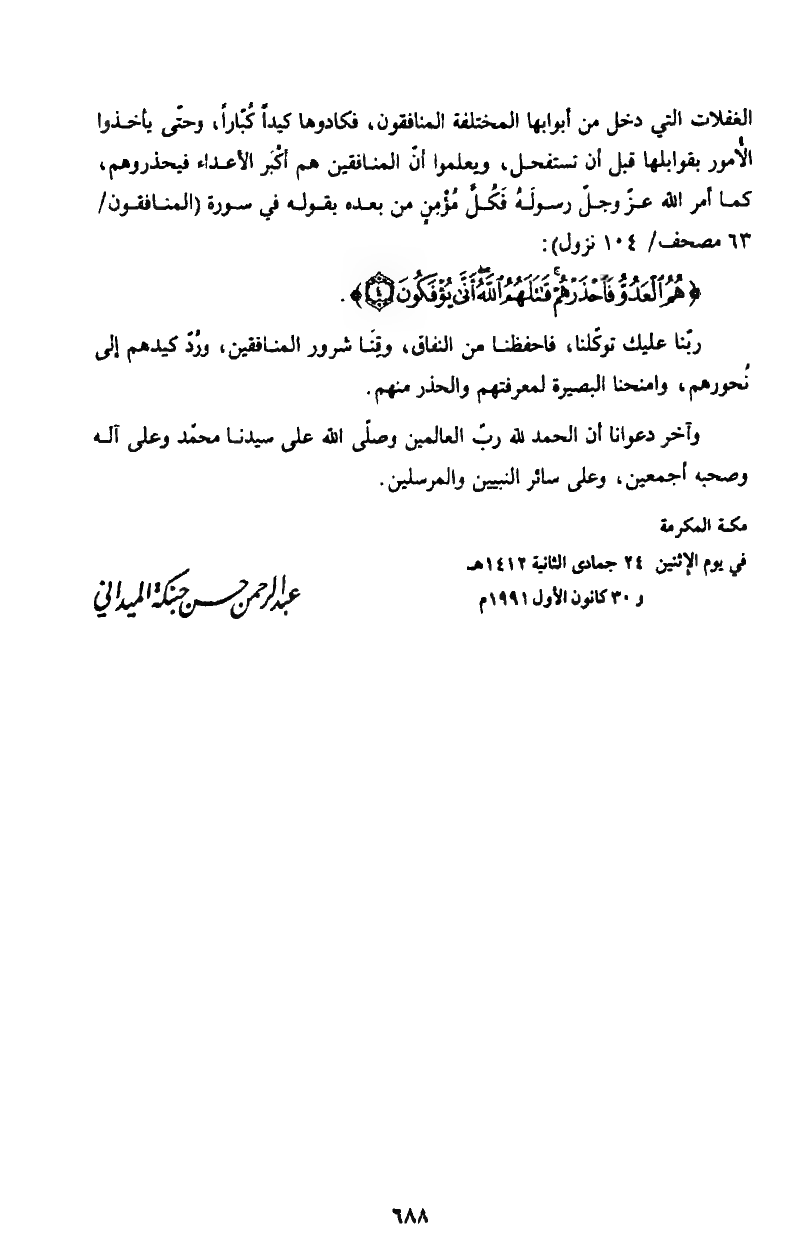 الغفلات التي دخل من أبوابها المختلفة المنافقون، فكادوها كيداً كُبّاراً، وحتّى يأخذوا
الأمور بقوابلها قبل أن تستفحل، ويعلموا أنّ المنافقين هم أكْبَر الأعداء فيحذروهم،
كما أمر الله عزّ وجلّ رسولَهُ فَكُلَّ مُؤْمِنٍ من بعده بقوله في سورة (المنافقون/
٦٣ مصحف/ ١٠٤ نزول):
﴿هُمُ ٱلْعَدُوُّ فَٱحْذَرْهُمْ ۚ قَٰتَلَهُمُ ٱللَّهُ ۖ أَنَّىٰ يُؤْفَكُونَ ۝٤﴾.
ربّنا عليك توكّلنا، فاحفظنا من النفاق، وقِنَا شرور المنافقين، ورُدّ كيدهم إلى
نُحورهم، وامنحنا البصيرة لمعرفتهم والحذر منهم.
وآخر دعوانا أن الحمد لله ربّ العالمين وصلّى الله على سيدنا محمّد وعلى آله
وصحبه أجمعين، وعلى سائر النبيين والمرسلين.
مكة المكرمة
في يوم الإثنين ٢٤ جمادى الثانية ١٤١٢هـ
و ٣٠ كانون الأول ١٩٩١م
عبد الرحمن حسن حبنكة الميداني
٦٨٨